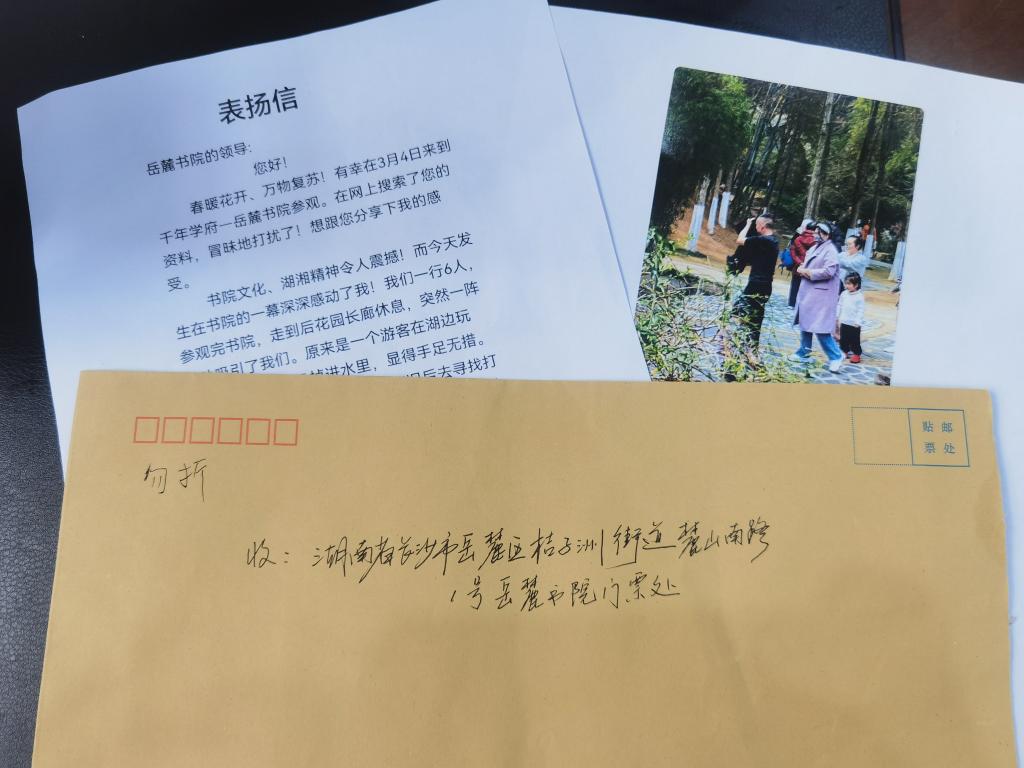 表扬信
岳麓书院的领导:
您好!
春暖花开、万物复苏!有幸在3月4日来到
千年学府一岳麓书院参观。在网上搜索了您的
资料,冒昧地打扰了!想跟您分享下我的感
受。
书院文化、湖湘精神令人震撼!而今天发
生在书院的一幕深深感动了我!我们一行6人,
参观完书院,走到后花园长廊休息,突然一阵
吸引了我们。原来是一个游客在湖边玩
掉进水里,显得手足无措。
后去寻找打
贴 邮
票 处
勿折
收:湖南省长沙市岳麓区桔子洲街道麓山南路
1号岳麓书院门票处